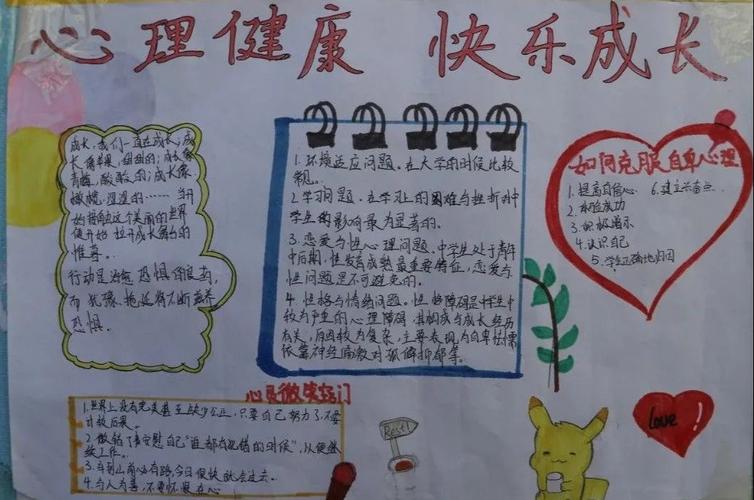 心理健康 快乐成长
成长,我们一直在成长;成
长像苹果,甜甜的;成长像
青梅,酸酸的;成长像
橄榄,涩涩的……当
这个美丽的世界
便开始拉开成长舞台的
帷幕。
行动是治愈恐惧的良药,
而犹豫、拖延将不断滋养
恐惧.
1.环境适应问题。在大学的时候比较
常见。
2.学习问题。在学习上的困难与挫折对中
学生的影响最为显著的。
3.恋爱与性心理问题、中学生处于青年
中后期,性发育成熟最重要特征,恋爱与
性问题是不可避免的。
4.性格与情绪问题。性格障碍是中学生中
较为严重的心理障碍 其构成与成长经历
有关,原因较为复杂,主要表现为自卑怯懦
依赖神经质敌对孤僻抑郁等。
如何克服自卑心理
1.提高自信心 6.建立
2.体验成功
3.积极暗示
4.认识自己
5.学生正确地归因
心灵微笑窍门
1.世界上没有完美甚至缺少公正,只要自己努力了,不要
计较后果。
2.做错了事安慰自己“谁都有犯错的时候”,从便继
续工作。
3.车到山前必有路,今日很快就会过去。
4.与人为善,不要怀恨在心
Rest!
love